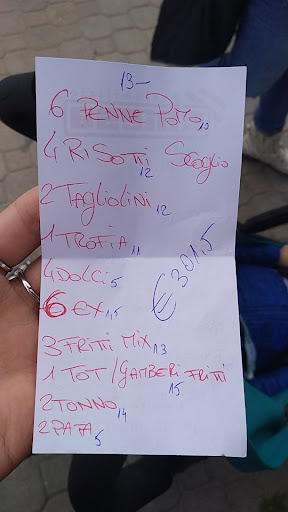 13-
6 PENNE POMO 10
4 RISOTTI SCOGLIO 12
2 TAGLIOLINI 12
1 TROFIA 11
4 DOLCI 5
€ 301,5
6 EX 1,5
3 FRITTI MIX 13
1 TOT/GAMBERI FRITTI 15
2 TONNO 14
2 PATA 5